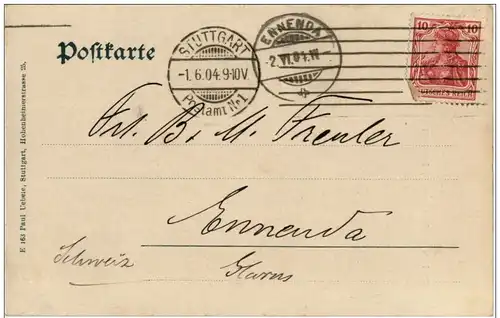 Postkarte
STUTTGART
-1.6.04.9-10V.
Postamt No 1
ENNENDA
-2.VI.04.IV
10 10
DEUTSCHES REICH
Frl. B. M. Freuler
Ennenda
Schweiz Glarus
E 163 Paul Uebele, Stuttgart, Hohenheimerstrasse 25.